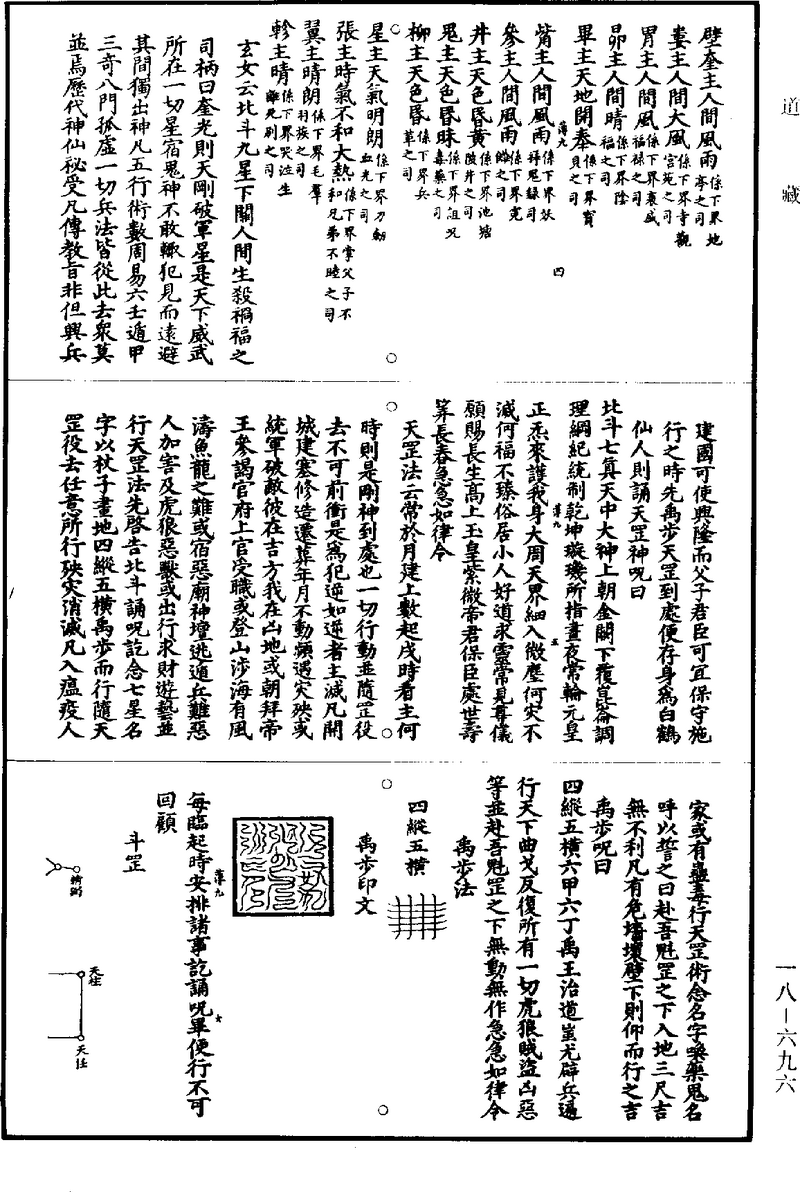 道藏
壁奎主人間風雨係下界地亭之司
婁主人間大風係下界寺觀宮苑之司
胃主人間風係下界衰盛福祿之司
昴主人間晴係下界陰福之司
畢主天地開泰係下界寶貝之司
薄九
四
觜主人間風雨係下界妖祥鬼籙司
參主人間風雨係下界
井主天色昏黃係下界池塘陂井之司
鬼主天色昏昧係下界詛咒毒藥之司
柳主天色昏係下界兵草之司
星主天氣明朗係下界刀劒血光之司
張主時氣不和大熱係下界掌父子不和兄弟不睦之司
翼主晴朗係下界毛羣羽族之司
軫主晴係下界哭泣生離死別之司
玄女云北斗九星下關人間生殺禍福之
司柄曰奎光則天剛破軍星是天下威武
所在一切星宿鬼神不敢輙犯見而遠避
其間獨出神凡五行術數周易六壬遁甲
三奇八門孤虛一切兵法皆從此去衆莫
並焉歷代神仙祕受凡傳教旨非但興兵
建國可使興隆而父子君臣可宜保守施
行之時先禹步天罡到處便存身爲白鶴
仙人則誦天罡神呪曰
北斗七真天中大神上朝金闕下覆崑崙調
理綱紀統制乾坤璇璣所指晝夜常輪元皇
薄九
五
正炁來護我身大周天界細入微塵何灾不
滅何福不臻俗居小人好道求靈常見尊儀
願賜長生高上玉皇紫微帝君保臣處世壽
筭長春急急如律令
天罡法云常於月建上數起戌時看主何
時則是剛神到處也一切行動並隨罡役
去不可前衝是爲犯逆如逆者主滅凡開
城建塞修造遷葬年月不動頻遇灾殃或
統軍破敵彼在吉方我在凶地或朝拜帝
王參謁官府上官受職或登山涉海有風
濤魚龍之難或宿惡廟神壇逃遁兵難惡
人加害及虎狼惡獸或出行求財遊藝並
行天罡法先啓告北斗誦呪訖念七星名
字以杖子畫地四縱五橫禹步而行隨天
罡役去任意所行殃灾消滅凡入瘟疫人
家或有蠱毒行天罡術念名字喚藥鬼名
呼以誓之曰赴吾魁罡之下入地三尺吉
無不利凡有危墻壞壁下則仰而行之吉
禹步呪曰
四縱五橫六甲六丁禹王治道蚩尤辟兵遍
行天下曲戈反復所有一切虎狼賊盜凶惡
等並赴吾魁罡之下無動無作急急如律令
禹步法
四縱五橫
禹步印文
薄九
六
每臨起時安排諸事訖誦呪畢便行不可
回顧
斗罡
天柱
天任
一八—六九六